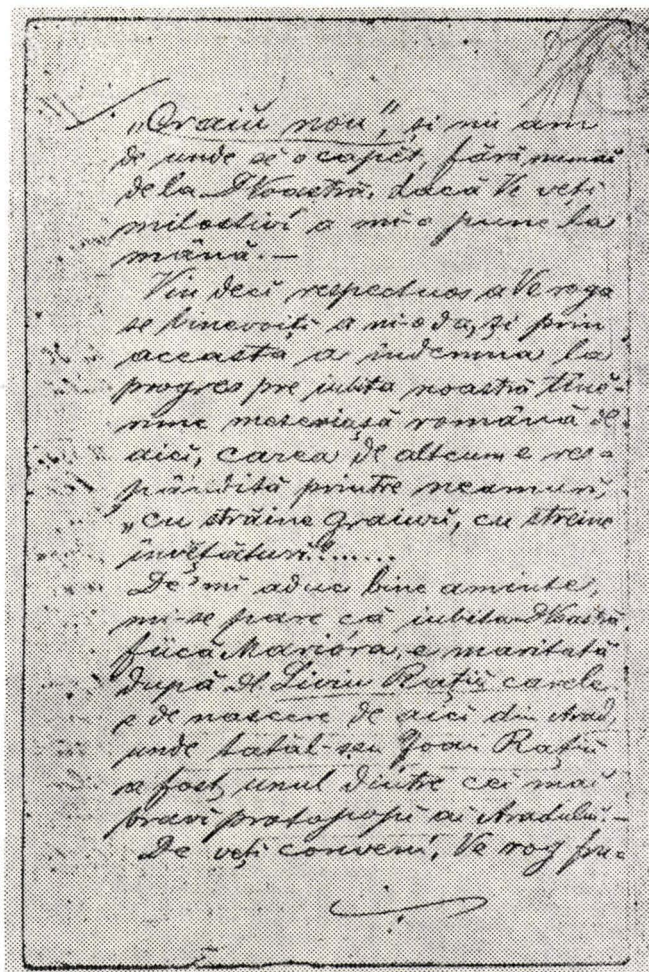 „Craiŭ nou", și nu am
de unde sĕ o capĕt, fără numai
dela DVoastră, dacă Ve veți
milostivi a mi-o pune la
mână.—
Viu deci respectuos a Ve ruga
se binevoiți a mi-o da, și prin
aceasta a îndemna la
progres pre iubita noastră tinĕ-
rime meseriașă română de
aici, carea de altcum e res-
pândită printre neamuri,
„cu străine graiuri, cu streine
învĕțături"......
De 'mi aduc bine aminte,
mi-se pare că iubita DVoastră
fiică Marióra, e maritată
după Dl. Liviu Rațiŭ carele
e de nascere de aici din Arad,
unde tatăl-seu Ioan Rațiŭ
a fost unul dintre cei mai
bravi protopopi ai Aradului.—
De veți conveni, Ve rog fru-